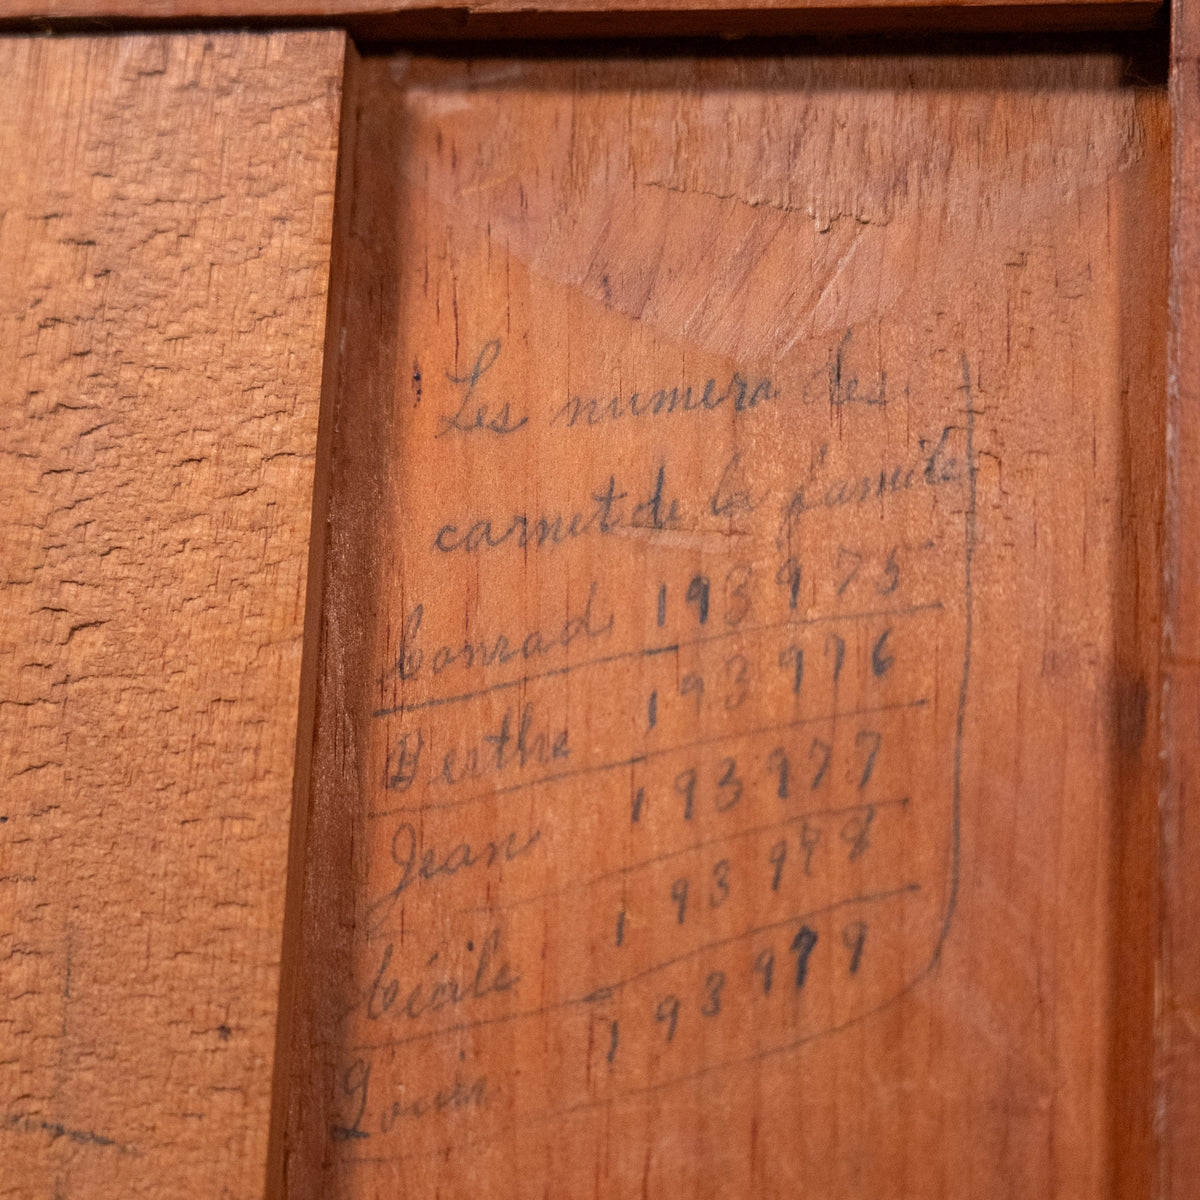 Les numero des
carnet de la famille
Conrad 193975
Berthe 193976
Jean 193977
Cécile 193978
Louis 193979